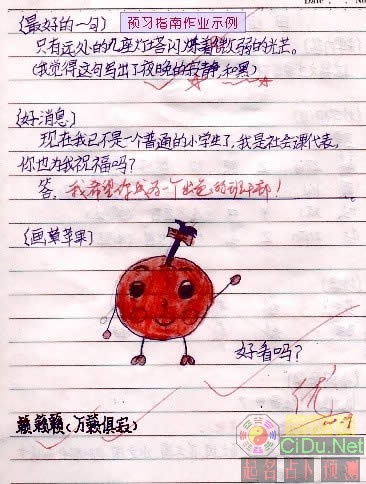 Date
预习指南作业示例
(最好的一句)
只有远处的几座灯塔闪烁着微弱的光芒。
(我觉得这句写出了夜晚的寂静,和黑)
(好消息)
现在我已不是一个普通的小学生了,我是社会课代表,
你也为我祝福吗?
答,我希望你成为一个出色的班干部!
(画草苹果)
好看吗?
优
籁籁籁(万籁俱寂)
CiDu.Net
起名占卜预测